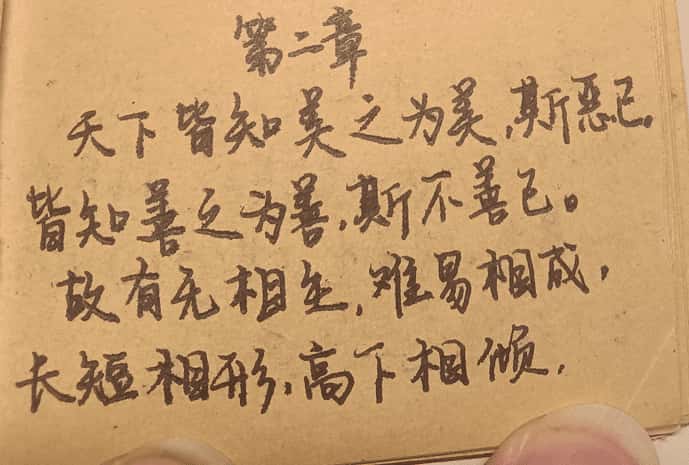 第二章
天下皆知美之为美,斯恶已,
皆知善之为善,斯不善已。
故有无相生,难易相成,
长短相形,高下相倾,